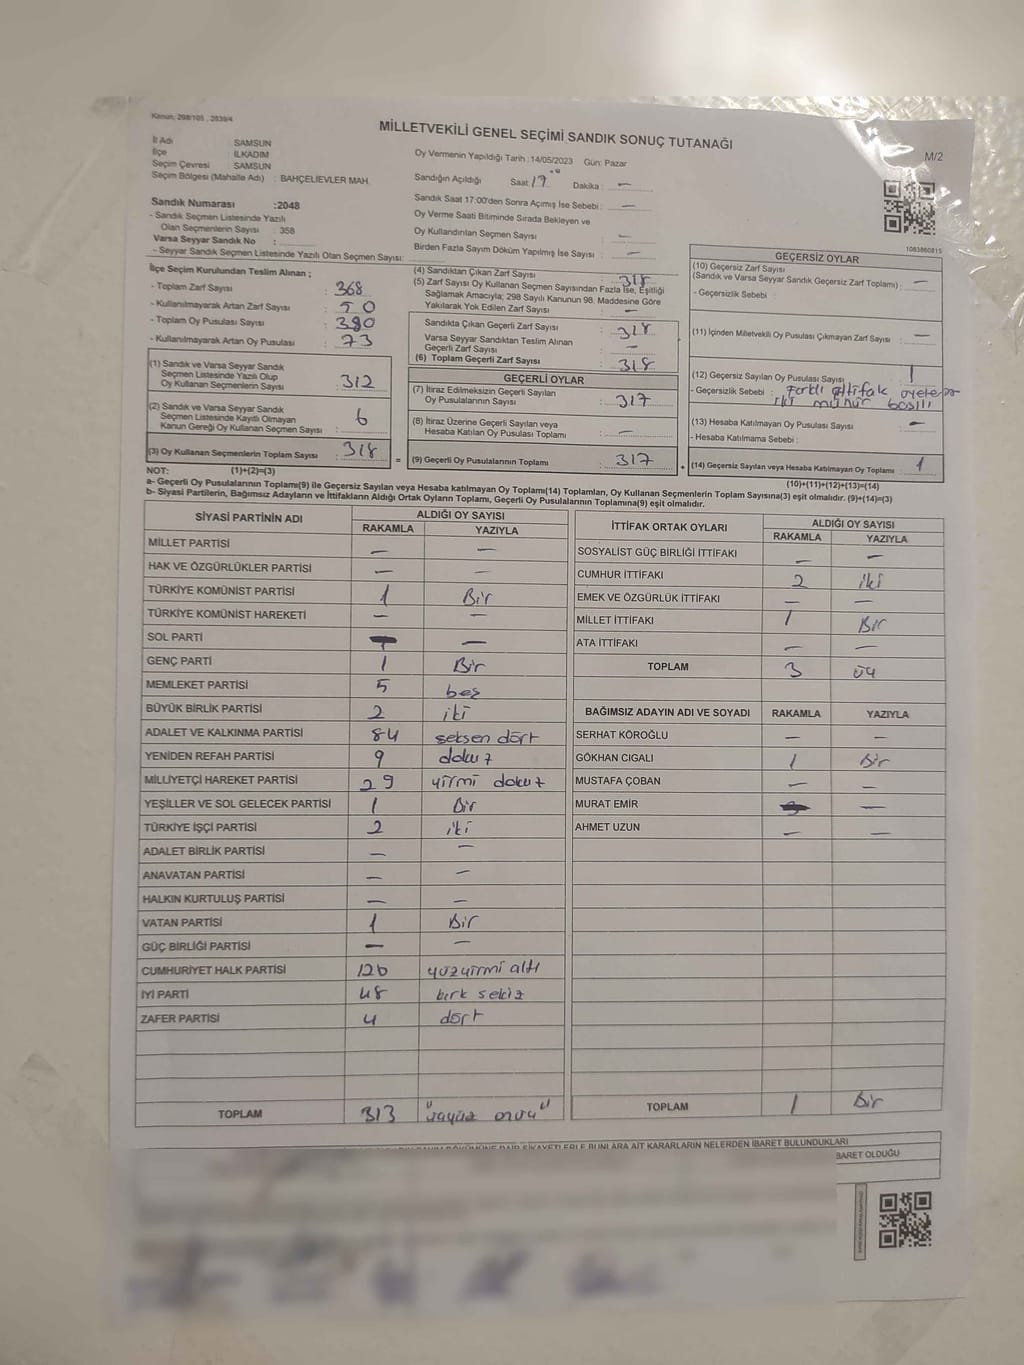 Kanun, 298/105 , 2839/4
MİLLETVEKİLİ GENEL SEÇİMİ SANDIK SONUÇ TUTANAĞI
M/2
İl Adı : SAMSUN
İlçe : İLKADIM
Seçim Çevresi : SAMSUN
Seçim Bölgesi (Mahalle Adı) : BAHÇELİEVLER MAH.
Sandık Numarası :2048
- Sandık Seçmen Listesinde Yazılı
Olan Seçmenlerin Sayısı : 358
Varsa Seyyar Sandık No :
- Seyyar Sandık Seçmen Listesinde Yazılı Olan Seçmen Sayısı:
Oy Vermenin Yapıldığı Tarih : 14/05/2023 Gün: Pazar
Sandığın Açıldığı Saat : 17 Dakika : —
Sandık Saat 17:00'den Sonra Açımış İse Sebebi : —
Oy Verme Saati Bitiminde Sırada Bekleyen ve
Oy Kullandırılan Seçmen Sayısı : —
Birden Fazla Sayım Döküm Yapılmış İse Sayısı : —
1083860815
İlçe Seçim Kurulundan Teslim Alınan ;
- Toplam Zarf Sayısı : 368
- Kullanılmayarak Artan Zarf Sayısı : 50
- Toplam Oy Pusulası Sayısı : 390
- Kullanılmayarak Artan Oy Pusulası : 73
(1) Sandık ve Varsa Seyyar Sandık
Seçmen Listesinde Yazılı Olup
Oy Kullanan Seçmenlerin Sayısı : 312
(2) Sandık ve Varsa Seyyar Sandık
Seçmen Listesinde Kayıtlı Olmayan
Kanun Gereği Oy Kullanan Seçmen Sayısı : 6
(3) Oy Kullanan Seçmenlerin Toplam Sayısı : 318
(4) Sandıktan Çıkan Zarf Sayısı : 318
(5) Zarf Sayısı Oy Kullanan Seçmen Sayısından Fazla İse, Eşitliği
Sağlamak Amacıyla; 298 Sayılı Kanunun 98. Maddesine Göre
Yakılarak Yok Edilen Zarf Sayısı : —
Sandıkta Çıkan Geçerli Zarf Sayısı : 318
Varsa Seyyar Sandıktan Teslim Alınan
Geçerli Zarf Sayısı : —
(6) Toplam Geçerli Zarf Sayısı : 318
GEÇERLİ OYLAR
(7) İtiraz Edilmeksizin Geçerli Sayılan
Oy Pusulalarının Sayısı : 317
(8) İtiraz Üzerine Geçerli Sayılan veya
Hesaba Katılan Oy Pusulası Toplamı : —
= (9) Geçerli Oy Pusulalarının Toplamı : 317
GEÇERSİZ OYLAR
(10) Geçersiz Zarf Sayısı
(Sandık ve Varsa Seyyar Sandık Geçersiz Zarf Toplamı) : —
- Geçersizlik Sebebi :
(11) İçinden Milletvekili Oy Pusulası Çıkmayan Zarf Sayısı : —
(12) Geçersiz Sayılan Oy Pusulası Sayısı : 1
- Geçersizlik Sebebi : Farklı ittifak
iki mühür basılı
(13) Hesaba Katılmayan Oy Pusulası Sayısı : —
- Hesaba Katılmama Sebebi :
+ (14) Geçersiz Sayılan veya Hesaba Katılmayan Oy Toplamı : 1
NOT: (1)+(2)=(3) (10)+(11)+(12)+(13)=(14)
a- Geçerli Oy Pusulalarının Toplamı(9) ile Geçersiz Sayılan veya Hesaba katılmayan Oy Toplamı(14) Toplamları, Oy Kullanan Seçmenlerin Toplam Sayısına(3) eşit olmalıdır. (9)+(14)=(3)
b- Siyasi Partilerin, Bağımsız Adayların ve İttifakların Aldığı Ortak Oyların Toplamı, Geçerli Oy Pusulalarının Toplamına(9) eşit olmalıdır.
SİYASİ PARTİNİN ADI ALDIĞI OY SAYISI
RAKAMLA YAZIYLA
MİLLET PARTİSİ — —
HAK VE ÖZGÜRLÜKLER PARTİSİ — —
TÜRKİYE KOMÜNİST PARTİSİ 1 Bir
TÜRKİYE KOMÜNİST HAREKETİ — —
SOL PARTİ — —
GENÇ PARTİ 1 Bir
MEMLEKET PARTİSİ 5 beş
BÜYÜK BİRLİK PARTİSİ 2 iki
ADALET VE KALKINMA PARTİSİ 84 seksen dört
YENİDEN REFAH PARTİSİ 9 dokuz
MİLLİYETÇİ HAREKET PARTİSİ 29 yirmi dokuz
YEŞİLLER VE SOL GELECEK PARTİSİ 1 Bir
TÜRKİYE İŞÇİ PARTİSİ 2 iki
ADALET BİRLİK PARTİSİ — —
ANAVATAN PARTİSİ — —
HALKIN KURTULUŞ PARTİSİ — —
VATAN PARTİSİ 1 Bir
GÜÇ BİRLİĞİ PARTİSİ — —
CUMHURİYET HALK PARTİSİ 126 yüzyirmi altı
İYİ PARTİ 48 kırk sekiz
ZAFER PARTİSİ 4 dört
TOPLAM 313
İTTİFAK ORTAK OYLARI ALDIĞI OY SAYISI
RAKAMLA YAZIYLA
SOSYALİST GÜÇ BİRLİĞİ İTTİFAKI — —
CUMHUR İTTİFAKI 2 iki
EMEK VE ÖZGÜRLÜK İTTİFAKI — —
MİLLET İTTİFAKI 1 Bir
ATA İTTİFAKI — —
TOPLAM 3 üç
BAĞIMSIZ ADAYIN ADI VE SOYADI RAKAMLA YAZIYLA
SERHAT KÖROĞLU — —
GÖKHAN CIGALI 1 Bir
MUSTAFA ÇOBAN — —
MURAT EMİR —
AHMET UZUN — —
TOPLAM 1 Bir
ŞİKAYETLERLE BUNLARA AİT KARARLARIN NELERDEN İBARET BULUNDUKLARI
BARET OLDUĞU